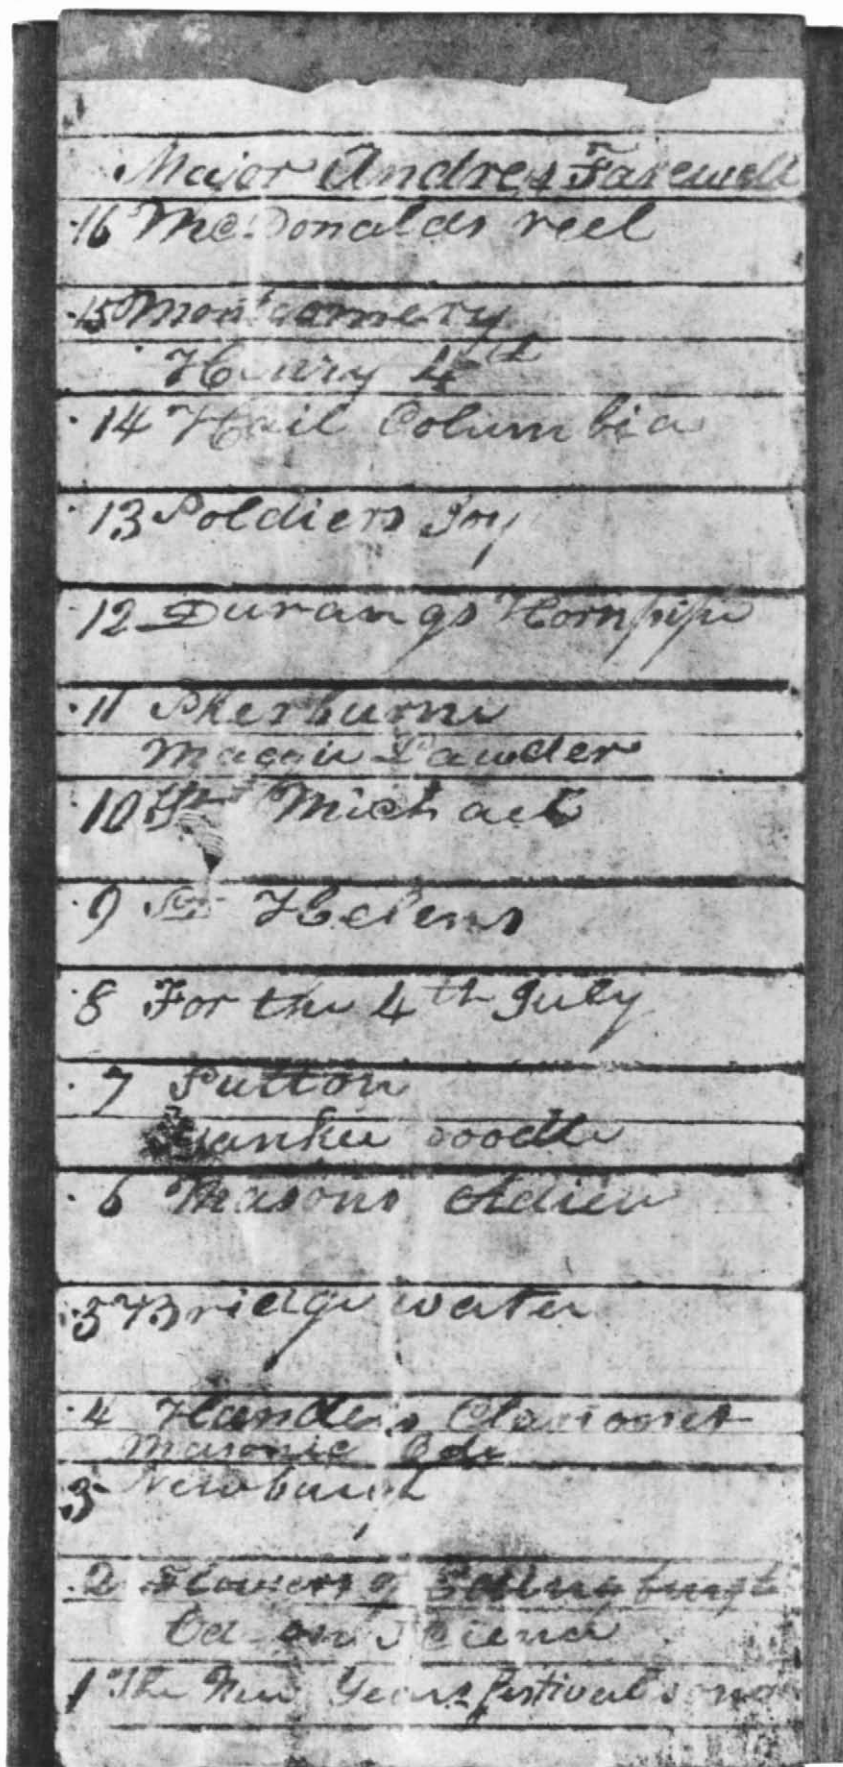 Major Andres Farewell
16 McDonalds reel
15 Montgomery
Henry 4th
14 Hail Columbia
13 Soldiers Joy
12 Durangs Hornpipe
11 Sherburne
Maggie Lawder
10 St Michael
9 St Helens
8 For the 4th July
7 Sutton
Yankee doodle
6 Masons Adieu
5 Bridgewater
4 Handels Clarionet
Masonic Ode
3 Newburgh
2 Flowers of
Ode on Science
1 The New Years festival song